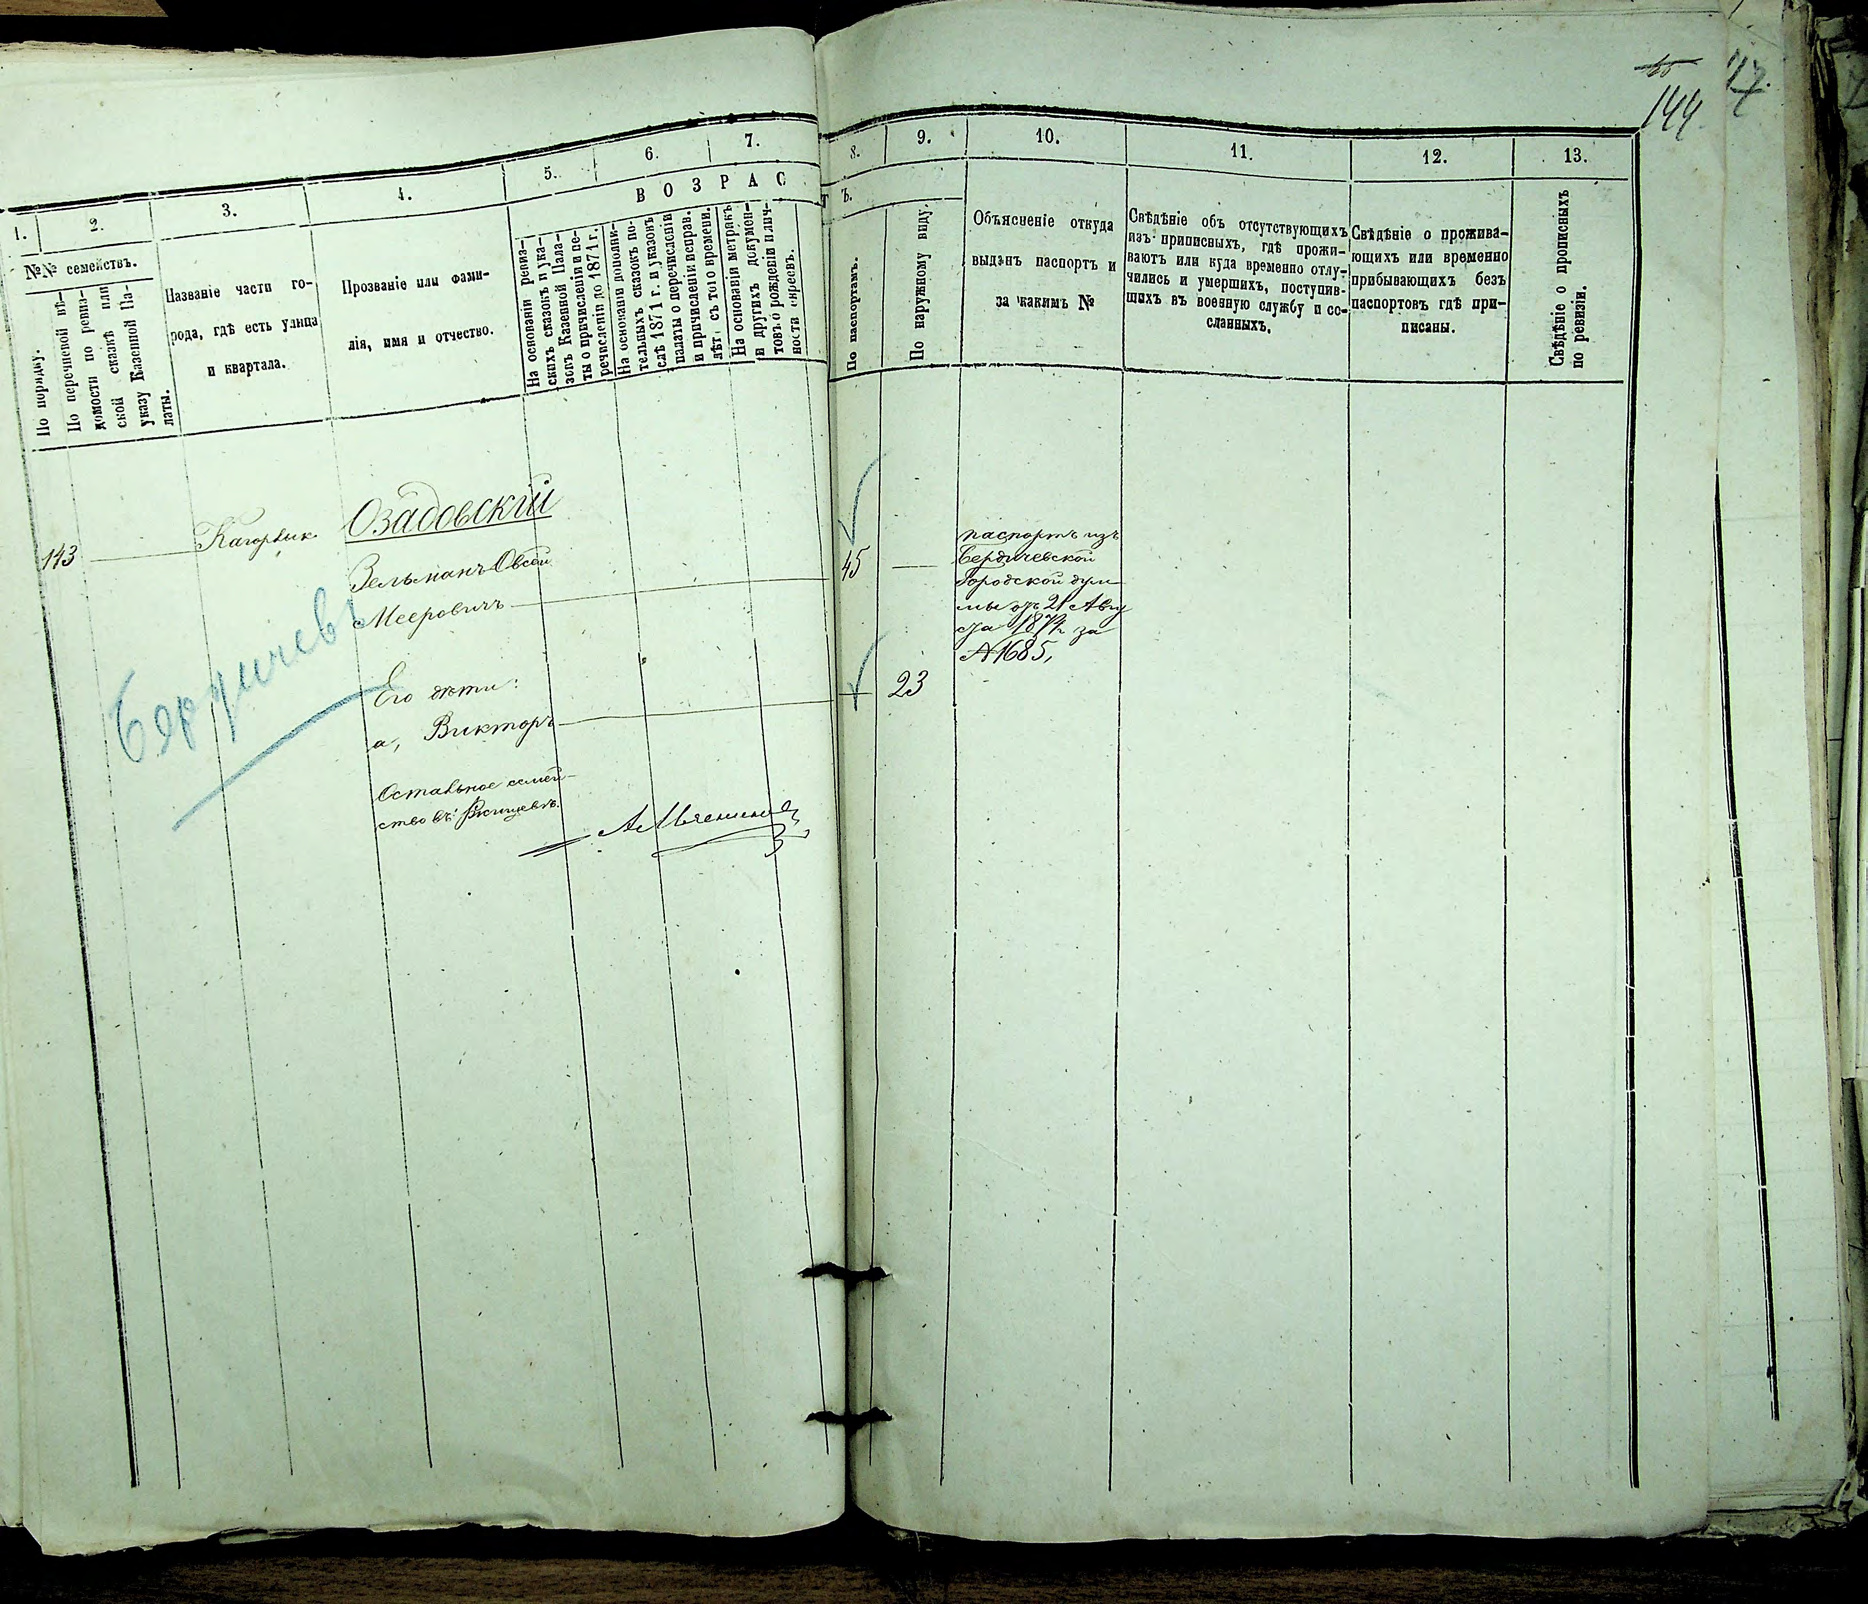 144
17.
1.
2.
3.
4.
5.
6.
7.
8.
9.
10.
11.
12.
13.
№№ семействъ.
По порядку.
По перечневой вѣ-
домости по ревиз-
ской сказкѣ или
указу Казенной Па-
латы.
Названіе части го-
рода, гдѣ есть улица
и квартала.
Прозваніе или фами-
лія, имя и отчество.
ВОЗРАСТЪ.
На основаніи ревиз-
скихъ сказокъ и ука-
зовъ Казенной Пала-
ты о причисленіи и пе-
речисленіи до 1871 г.
На основаніи дополни-
тельныхъ сказокъ по-
слѣ 1871 г. и указовъ
палаты о перечисленіи
и причисленіи исправ.
лѣтъ съ того времени.
На основаніи метрикъ
и другихъ докумен-
товъ о рожденіи и лич-
ности евреевъ.
По паспортамъ.
По наружному виду.
Объясненіе откуда
выданъ паспортъ и
за какимъ №
Свѣдѣніе объ отсутствующихъ
изъ приписныхъ, гдѣ прожи-
ваютъ или куда временно отлу-
чились и умершихъ, поступив-
шихъ въ военную службу и со-
сланныхъ.
Свѣдѣніе о прожива-
ющихъ или временно
прибывающихъ безъ
паспортовъ гдѣ при-
писаны.
Свѣдѣніе о прописныхъ
по ревизіи.
143
Кагорлык
Озадовскій
Зельманъ Овсей
Мееровичъ
45
паспортъ изъ
Бердичевской
Городской дум-
мы отъ 21 Авгу
ста 1874 за
№ 1685,
Бердичевъ
Его дѣти:
а, Викторъ
23
Остальное семей-
ство въ